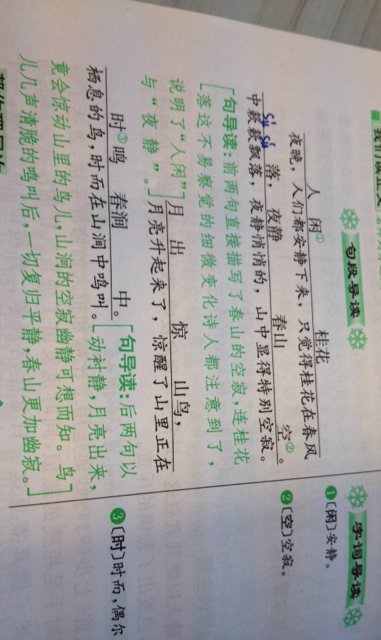 句段导读
人闲① 桂花
夜晚，人们都安静下来，只觉得桂花在春风
落，夜静 春山 空②。
sù sù
中簌簌飘落，夜静悄悄的，山中显得特别空寂。
[句导读：前两句直接描写了春山的空寂，连桂花
落这不易察觉的细微变化诗人都注意到了，
说明了“人闲”]月 出 惊 山鸟，
与“夜静”。]月亮升起来了，惊醒了山里正在
时③鸣 春涧 中。[句导读：后两句以
栖息的鸟，时而在山涧中鸣叫。动衬静，月亮出来，
竟会惊动山里的鸟儿，山涧的空寂幽静可想而知。鸟
儿几声清脆的鸣叫后，一切复归平静，春山更加幽寂。]
字词导读
❶〔闲〕安静。
❷〔空〕空寂。
❸〔时〕时而，偶尔